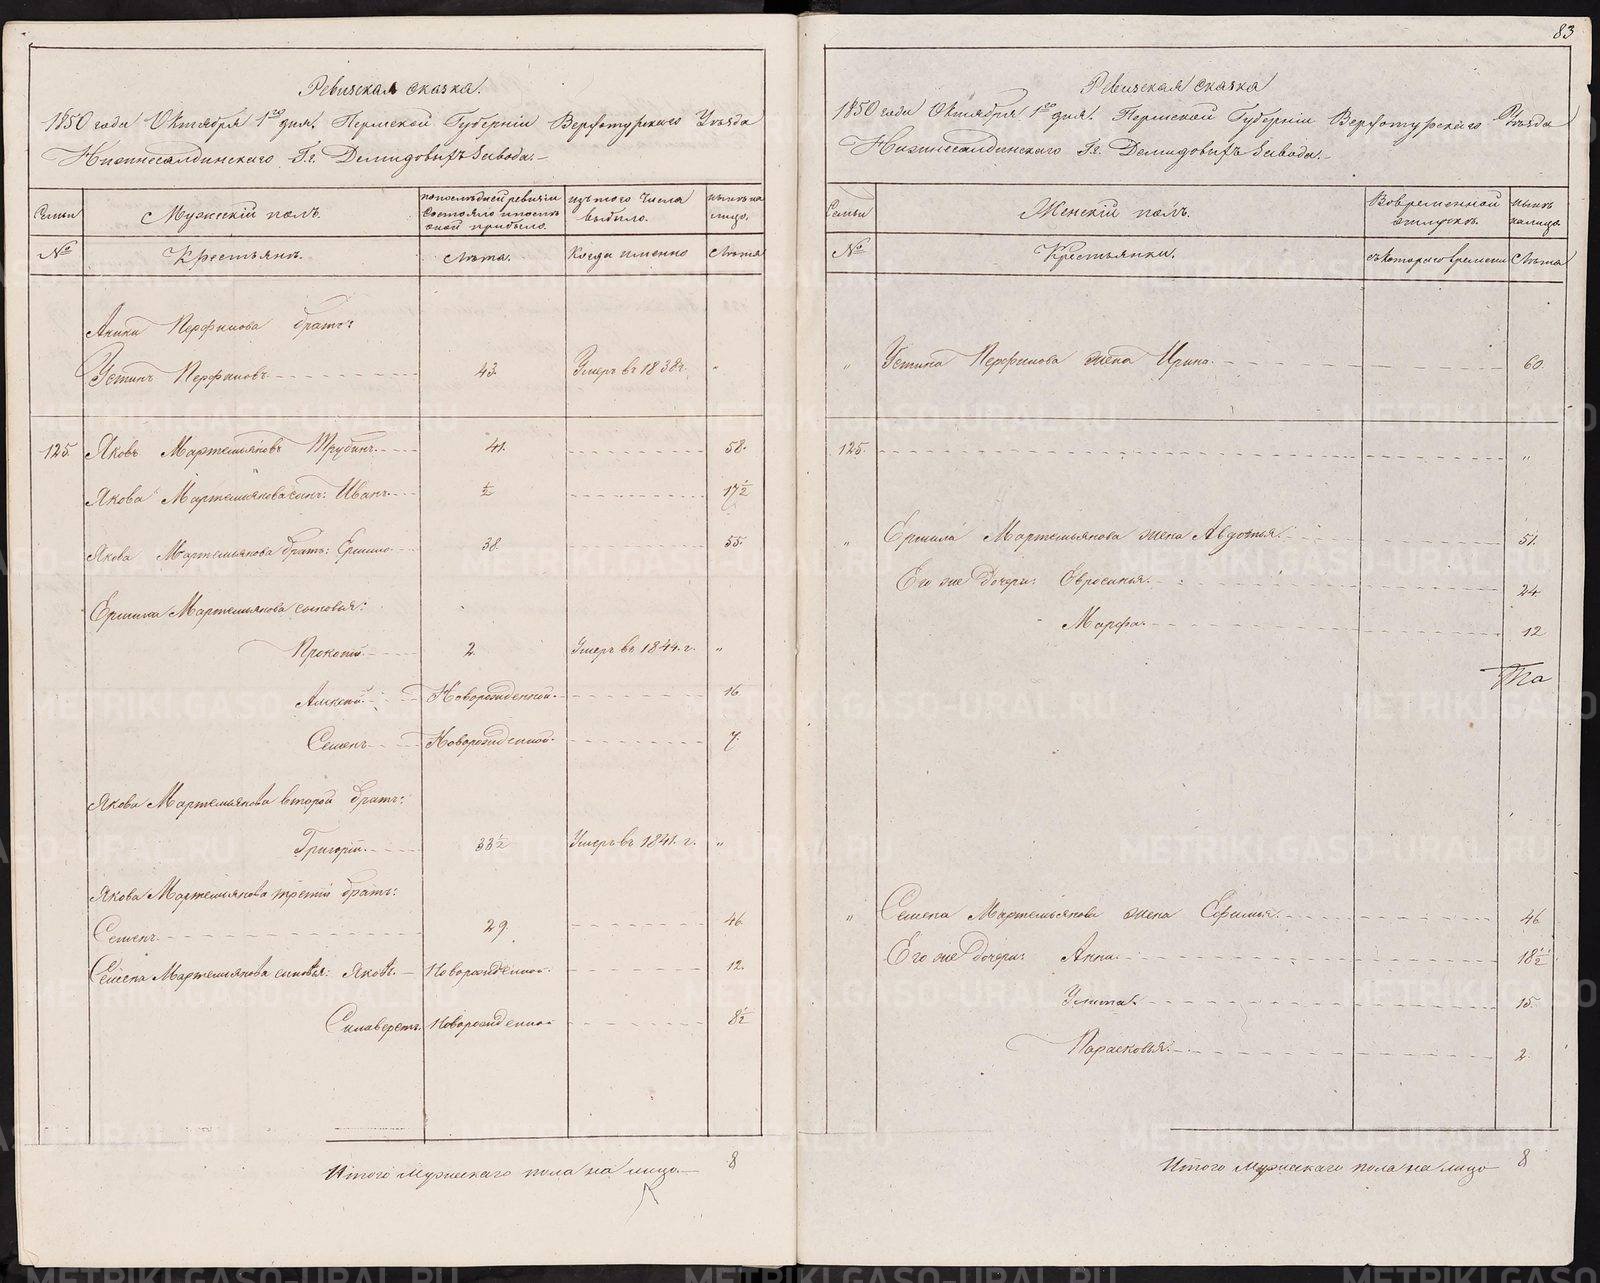 Ревизская сказка.
1850 года Октября 1го дня. Пермской Губерніи Верхотурскаго Уѣзда
Нижнесалдинскаго Гг. Демидовыхъ Завода.
Семьи
Мужескій полъ.
по последней ревизіи состояло и после оной прибыло.
изъ того числа выбыло.
ныне на лицо.
№
Крестьянъ.
Лѣта.
Когда именно
Лѣта
Аники Перфилова братъ:
Устинъ Перфиловъ 43. Умеръ въ 1838 г. "
125. Яковъ Мартемьяновъ Трубинъ. 41. 58.
Якова Мартемьянова сынъ: Иванъ. ½ 17½
Якова Мартемьянова братъ: Ермило 38. 55.
Ермила Мартемьянова сыновья:
Прокопій 2. Умеръ въ 1844. г. "
Алексей Новорожденной. 16
Семенъ Новорожденной. 7.
Якова Мартемьянова второй братъ:
Григорій. 33½ Умеръ въ 1841. г. "
Якова Мартемьянова третій братъ:
Семенъ. 29. 46.
Семена Мартемьянова сыновья: Яковъ. Новорожденной. 12.
Селиверстъ. Новорожденной 8½
Итого мужескаго пола на лицо 8
83
Ревизская сказка
1850 года Октября 1го дня. Пермской Губерніи Верхотурскаго Уѣзда
Нижнесалдинскаго Гг. Демидовыхъ Завода.
Семьи
Женскій полъ.
Во временной отлучке.
ныне на лицо.
№
Крестьянки.
съ котораго времени
Лѣта
" Устина Перфилова жена Ирина. 60.
125. "
" Ермила Мартемьянова жена Авдотья. 51.
Его же дочери: Евросинья. 24
Марфа. 12
Та
" Семена Мартемьянова жена Ефимья. 46
Его же дочери: Анна. 18½
Улита. 15.
Парасковья. 2.
Итого мужескаго пола на лицо 8
METRIKI.GASO-URAL.RU